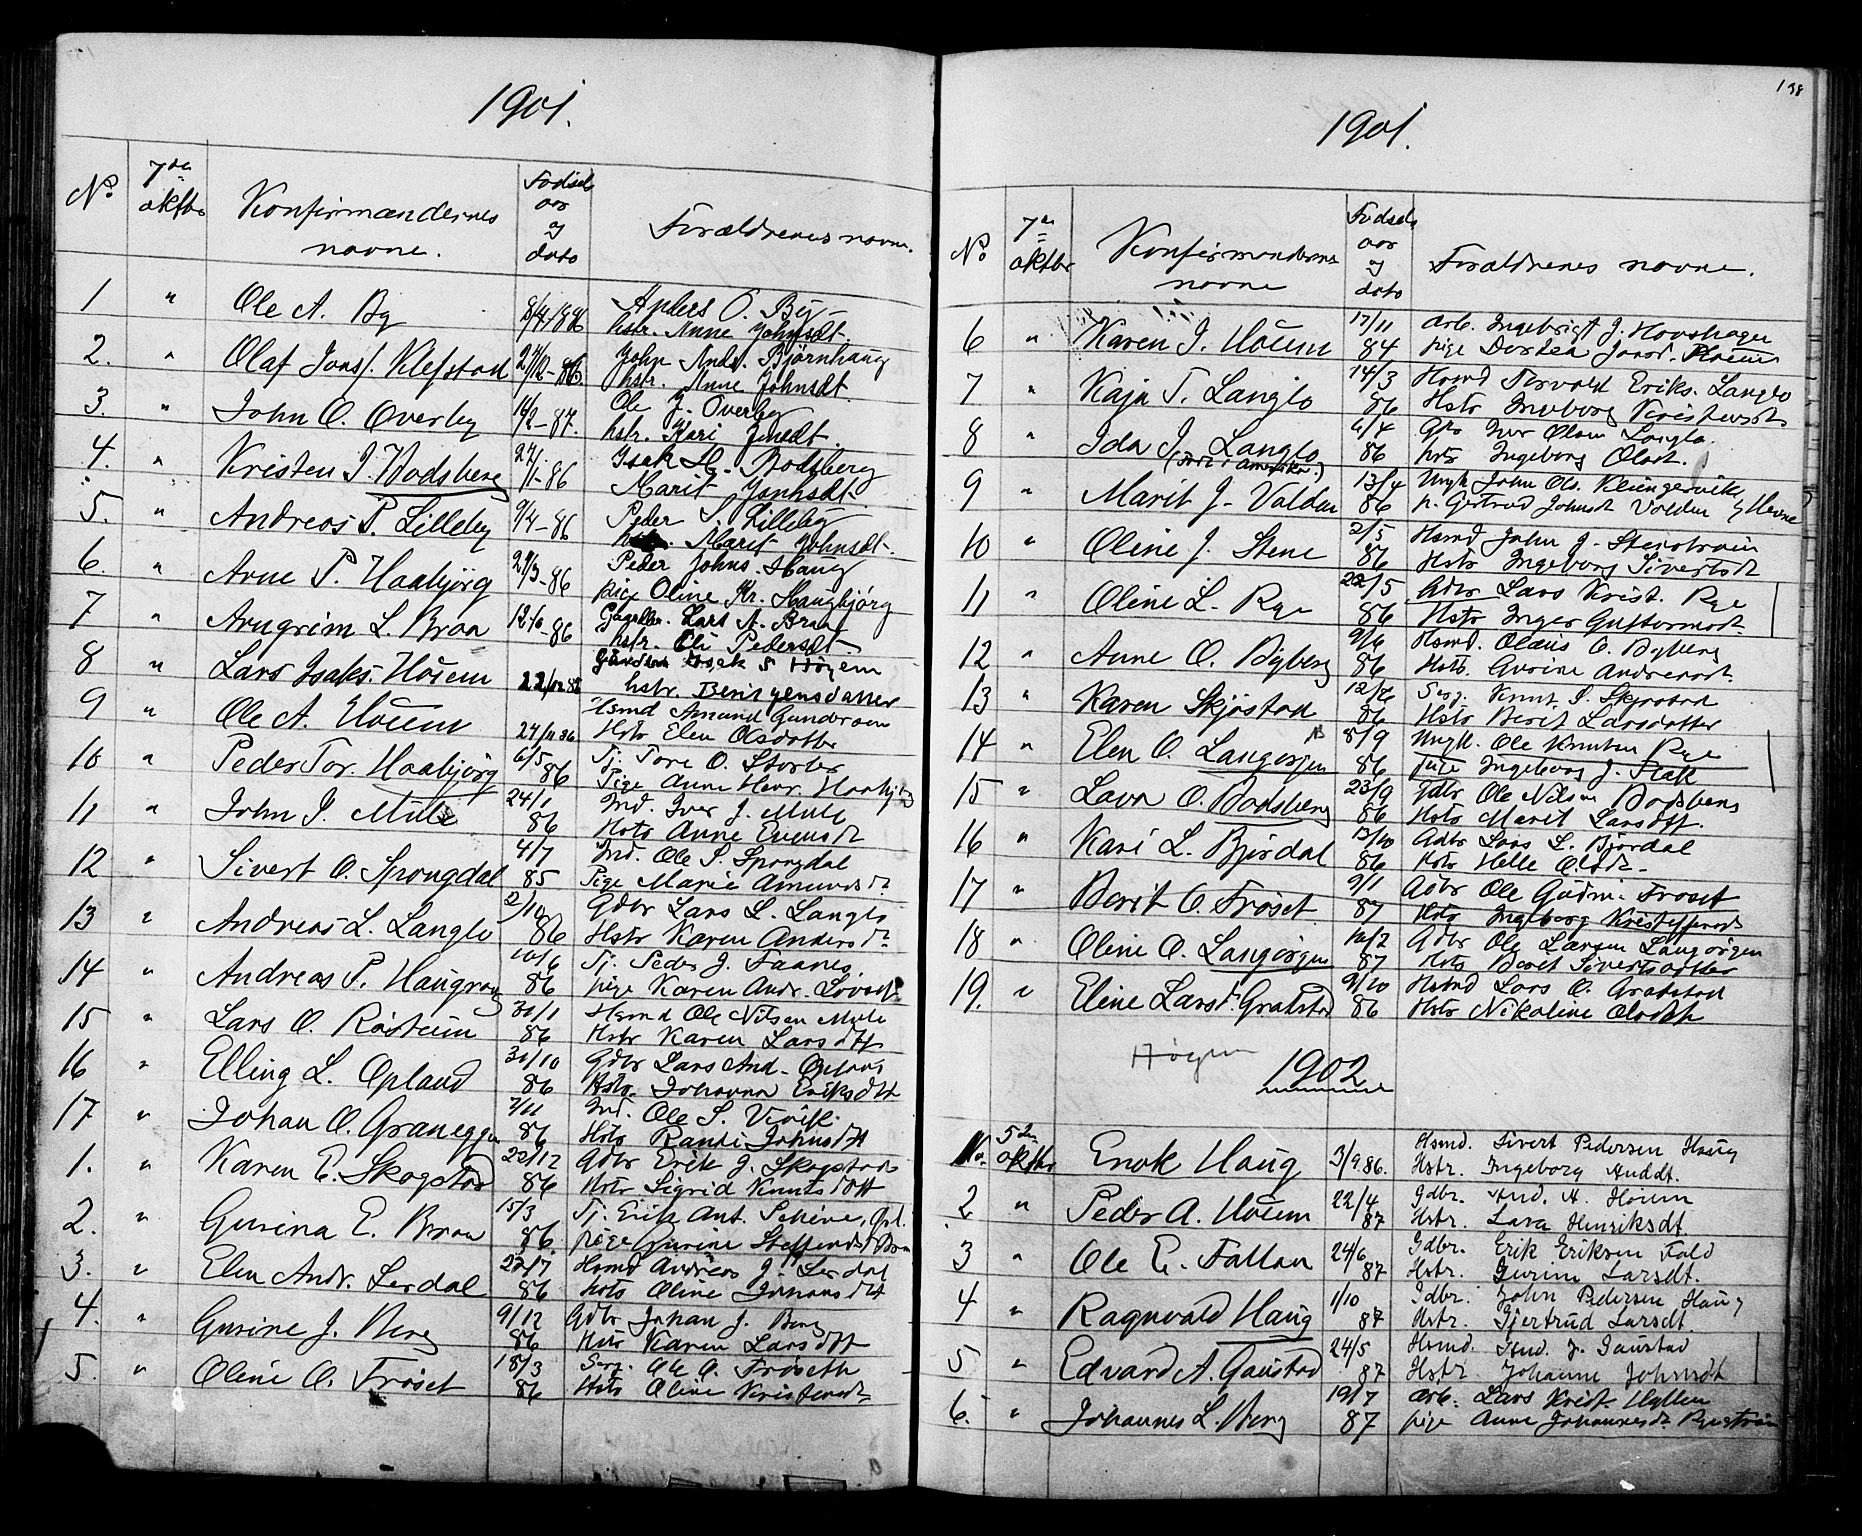 1901.
No
7de
oktbr
Konfirmændernes
navne.
Fødsels
aar
og
dato
Forældrenes navne.
1 " Ole A. By 8/4-1886 Anders O. By
hstr. Anne Johnsdt.
2. " Olaf Jonsf. Klefstad 27/12-86. John Ands. Bjørnhaug
hstr. Anne Johnsdt.
3. " John O. Overby 14/2-87. Ole J. Overby
hstr. Kari Jensdt.
4. " Kristen I. Bodsberg 27/11-86 Isak H. Bodsberg
Marit Jonhsdt.
5. " Andreas P. Lilleby 9/4-86 Peder S. Lilleby
Marit Johnsdt.
6. " Arne P. Haabjørg 29/3-86 Peder Johns. Haug
pige Oline Kr. Haugbjørg
7 " Arngrim L. Braa 12/10-86 Lars A. Braa
hstr. Eli Pedersdt
8 " Lars Isaks. Höiem 22/12 86 Gaardbr. Isak S Høyem
hstr. Berit Jensdatter
9 " Ole A. Höiem 24/11 86 Hsmd Amund Gundersen
Hstr Elen Olsdatter
10 " Peder Tor. Haabjörg 6/5 86 Tj. Tore O. Storler
Pige Anne Henr. Haabjörg
11 " John I. Mule 24/1 86 Ind. Iver J. Mule
Hstr Anne Evensdt
12 " Sivert O. Spongdal 4/7 85 Ind. Ole S. Spongdal
Pige Marie Amundsdt
13 " Andreas L. Langlo 2/10 86 Gdbr Lars L. Langlo
Hstr Karen Andersdt
14 " Andreas P. Haugrøn 10/6 86 Tj. Peder J. Faanes
pige Karen Andr. Lovset
15 " Lars O. Röstum 30/1 86 Hsmd Ole Nilsen Mule
Hstr Karen Larsdtt
16 " Elling L. Opland 30/10 86 Gdbr Lars And. Opland
Hstr Johanna Eriksdtt
17 " Johan O. Graneggen 7/11 86 Ind. Ole S. Vivik
Hstr Randi Johnsdtt
1. " Karen E. Skogstad 22/12 86 Gdbr Erik J. Skogstad
Hstr Sigrid Knutsdatt
2. " Gurina E. Braa 15/3 86 Tj. Erik Ant. Schive, Opl.
pige Gurine Steffensdt Braa
3. " Elen Andr. Lerdal 22/7 86 Hsmd Andreas J. Lerdal
Hstr Oline Johansdtt
4. " Gurine J. Berg 9/12 86 Gdbr Johan J. Berg
Hstr Karen Larsdtt
5. " Oline O. Fröset 18/3 86 Serg. Ole O. Fröseth
Hstr Oline Kristensdt
138
1901.
No
7de
oktbr
Konfirmandernes
navne
Fødsels
aar
og
dato
Forældrenes navne.
6 " Karen I. Höiem 17/11 84 Arb. Ingebrigt J. Hovshagen
pige Dortea Jonsd. Höiem
7 " Kaja T. Langlo 14/3 86 Hsmd Torvald Eriks. Langlo
Hstr Ingeborg Kristensdt
8 " Ida I. Langlo 6/4 86 Gbr Iver Olsen Langlo.
(Født i Amerika.) hstr Ingeborg Olsdt.
9 " Marit J. Valden 13/4 86 Ungk John Ols. Klingervik
p. Gjertrud Johnsdt Valden, Hevne
10 " Oline J. Stene 2/5 86 Hsmd John J. Stenstrøm
Hstr Ingeborg Sivertsdt
11 " Oline L. Rye 22/5 86 Gdbr Lars Krist. Rye
Hstr Inger Guttormsdt.
12 " Anne O. Byberg 9/6 86 Hsmd. Olaus O. Byberg
Hstr. Gurine Andersdt.
13 " Karen Skjöstad 12/8 86 Serg. Knut S. Skjöstad
Hstr Berit Larsdatter
14 " Elen O. Langörjen 8/9 86 Ungk. Ole Knutsen Rye
Pige Ingeborg J. Flak
15 " Lava O. Bodsberg 23/9 86 Gdbr Ole Nilsen Bodsberg
Hstr Marit Larsdtt.
16 " Kari L. Bjørdal 13/10 86 Gdbr Lars L. Björdal
Hstr Helle Olsdt.
17 " Berit O. Fröset 9/1 87 Gdbr Ole Gudm. Fröset
Hstr Ingeborg Kristoffersdt
18 " Oline O. Langörgen 10/2 87 Gdbr Ole Larsen Langörgen
Hstr Berit Sivertsdatter
19. " Eline Larsdt. Gratstad 9/10 86 Hsmd Lars O. Gratstad
Hstr Nikoline Olsdtt
Høyem
1902
No. 5te oktbr Enok Haug 3/9.86. Hsmd. Sivert Pedersen Haug
Hstr. Ingeborg Andsdt.
2 " Peder A. Höiem 22/4 87 Gdbr. And. A. Höiem
Hstr. Lava Henriksdt
3 " Ole E. Fallan 24/6 87 Gdbr. Erik Eriksen Fald
Hstr. Gurine Larsdt.
4 " Ragnvald Haug 1/10 87 Gdbr. John Pedersen Haug
Hstr. Gjertrud Larsdt.
5 " Edvard A. Gaustad 24/5 87 Hsmd. And. J. Gaustad
Hstr. Johanne Johnsdt
6. " Johannes L. Berg 19/7 87 Arb. Lars Krist. Hyllen
pige Anne Johannesdt.